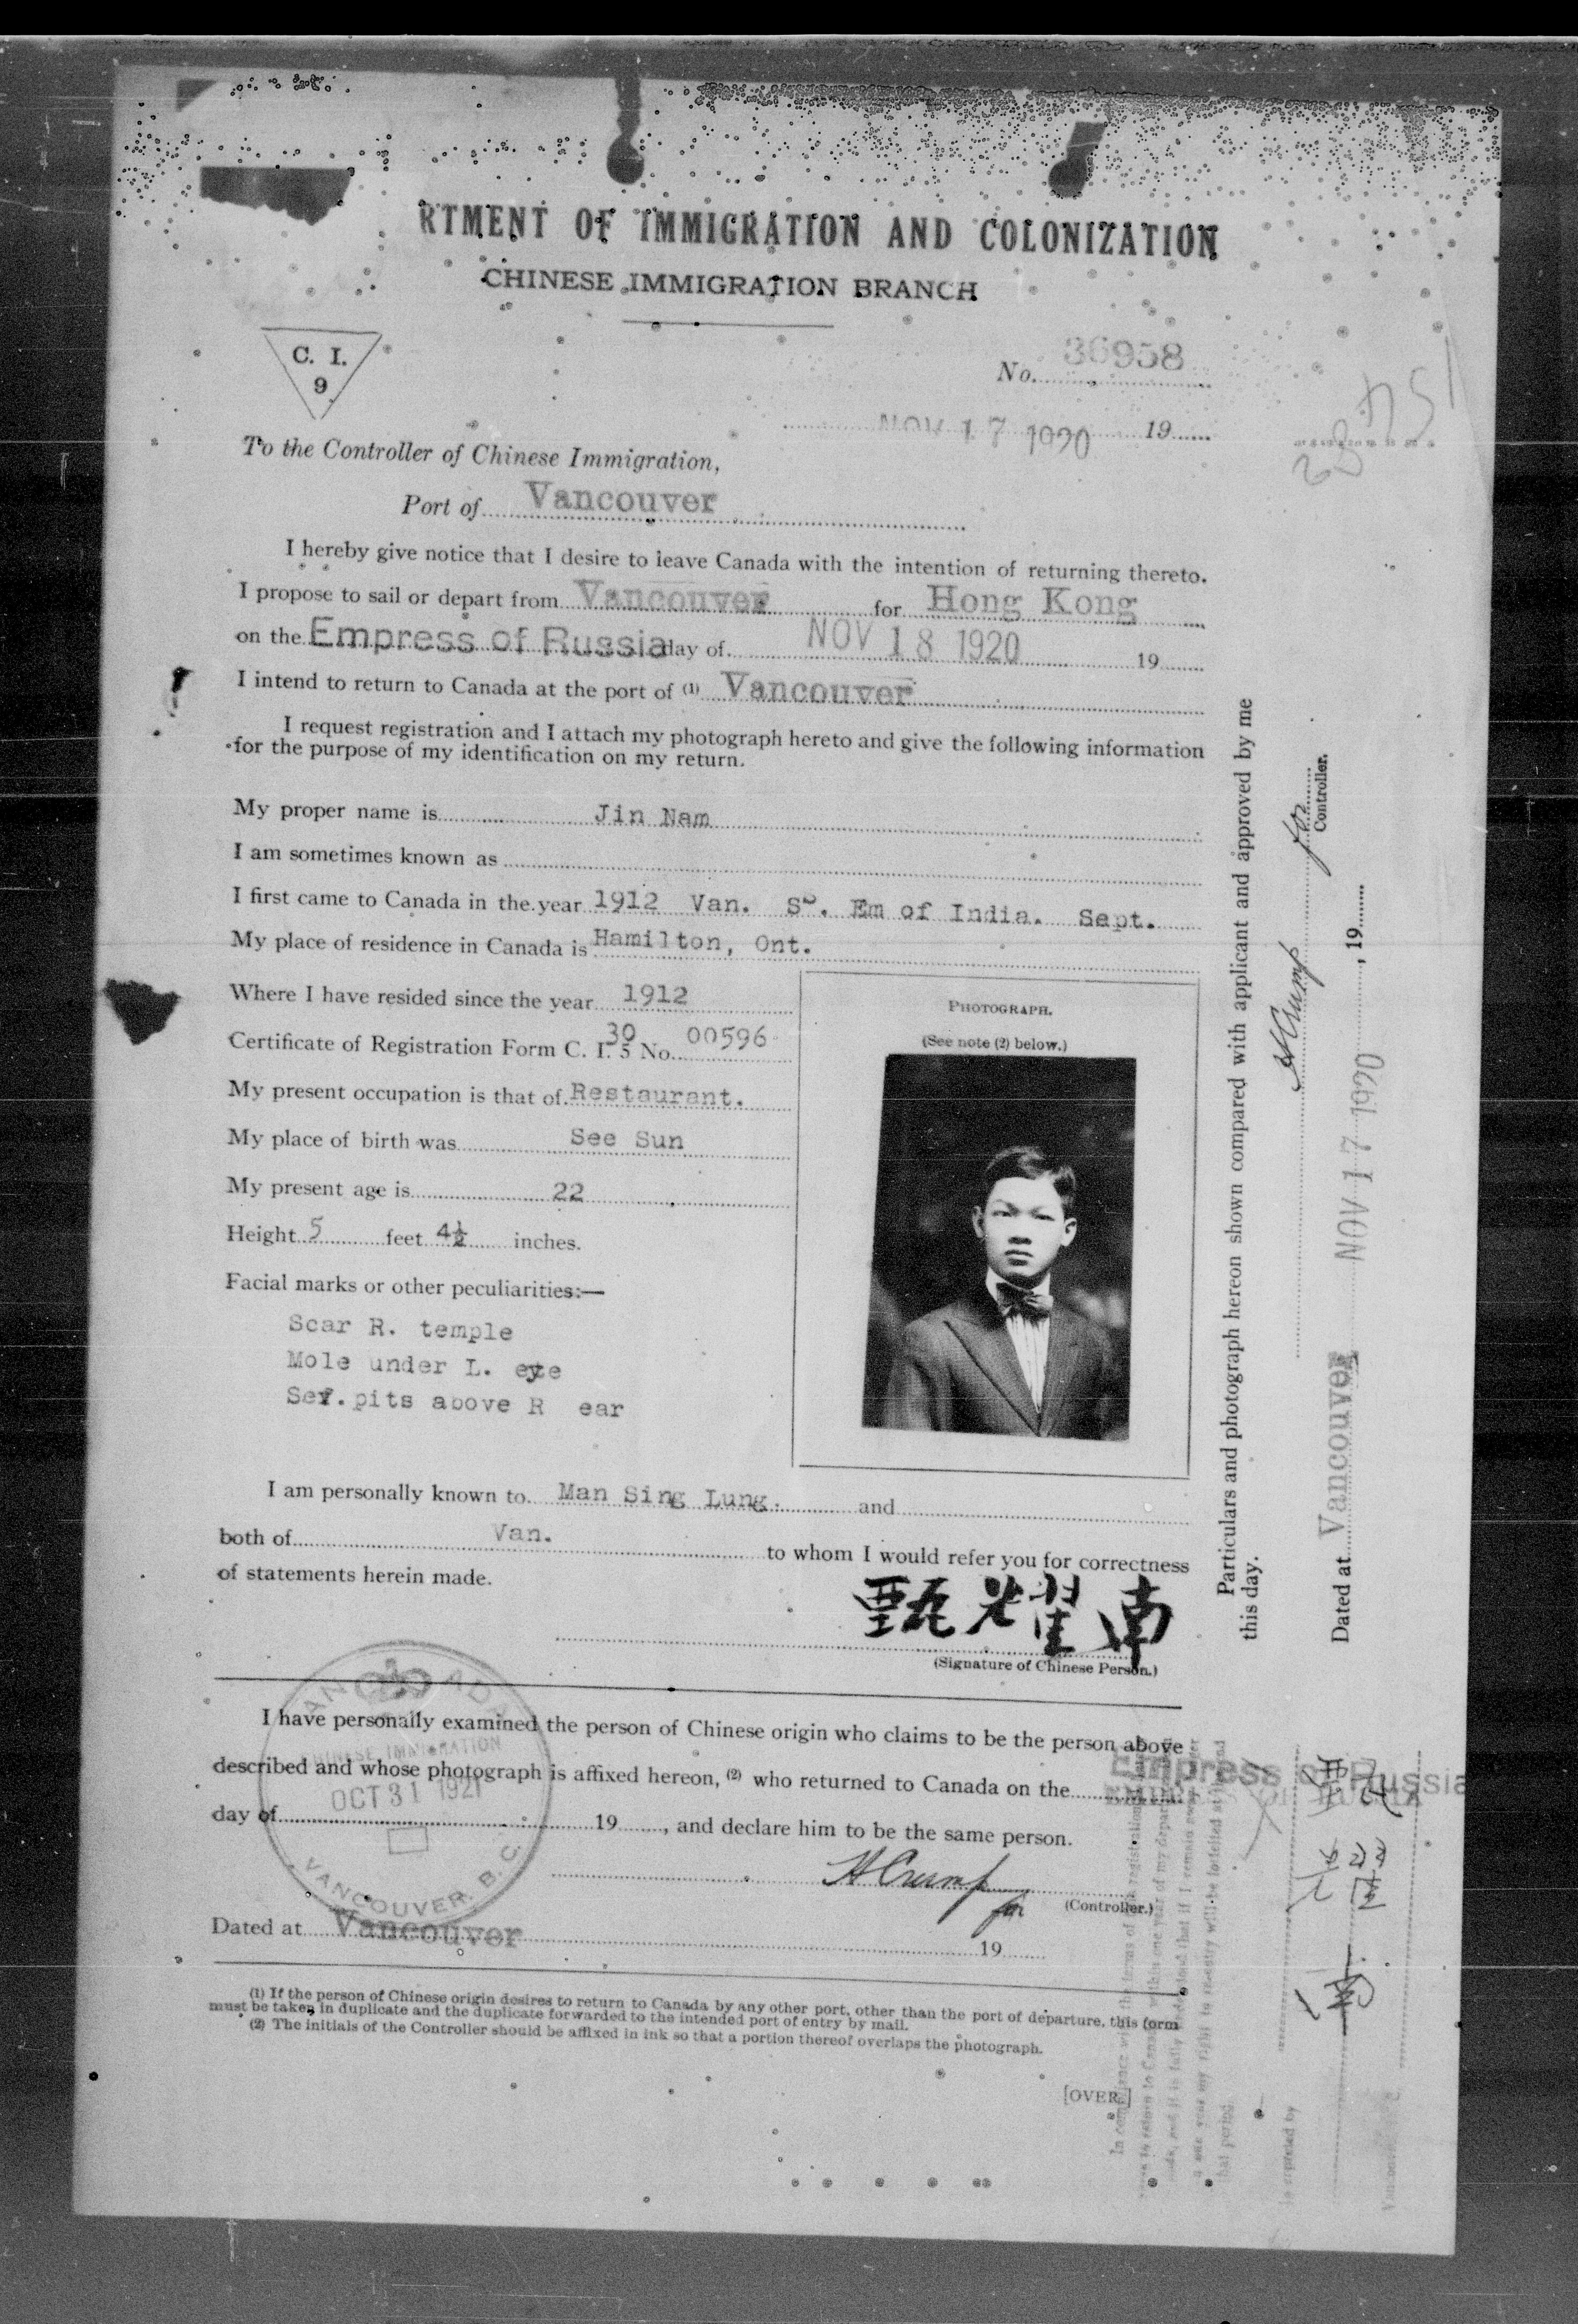 RTMENT OF IMMIGRATION AND COLONIZATION
CHINESE IMMIGRATION BRANCH
C. I.
9
No. 36958
NOV 17 1920 19
To the Controller of Chinese Immigration,
Port of Vancouver
I hereby give notice that I desire to leave Canada with the intention of returning thereto.
I propose to sail or depart from Vancouver for Hong Kong
on the Empress of Russia day of NOV 18 1920 19
I intend to return to Canada at the port of (1) Vancouver
I request registration and I attach my photograph hereto and give the following information
for the purpose of my identification on my return.
My proper name is Jin Nam
I am sometimes known as
I first came to Canada in the year 1912 Van. SS. Em of India. Sept.
My place of residence in Canada is Hamilton, Ont.
Where I have resided since the year 1912
Certificate of Registration Form C. I. 5 No. 30 00596
My present occupation is that of Restaurant.
My place of birth was See Sun
My present age is 22
Height 5 feet 4½ inches.
Facial marks or other peculiarities:—
Scar R. temple
Mole under L. eye
pits above R ear
PHOTOGRAPH.
(See note (2) below.)
I am personally known to Man Sing Lung. and
both of Van. to whom I would refer you for correctness
of statements herein made.
甄光耀南
(Signature of Chinese Person.)
I have personally examined the person of Chinese origin who claims to be the person above
described and whose photograph is affixed hereon, (2) who returned to Canada on the
Empress of Russia
day of 19, and declare him to be the same person.
H Crump
for (Controller.)
Dated at Vancouver 19
CHINESE IMMIGRATION
OCT 31 1921
VANCOUVER, B. C.
(1) If the person of Chinese origin desires to return to Canada by any other port, other than the port of departure, this form
must be taken in duplicate and the duplicate forwarded to the intended port of entry by mail.
(2) The initials of the Controller should be affixed in ink so that a portion thereof overlaps the photograph.
[OVER.]
Particulars and photograph hereon shown compared with applicant and approved by me
this day.
H Crump for
Controller.
Dated at Vancouver NOV 17 1920, 19